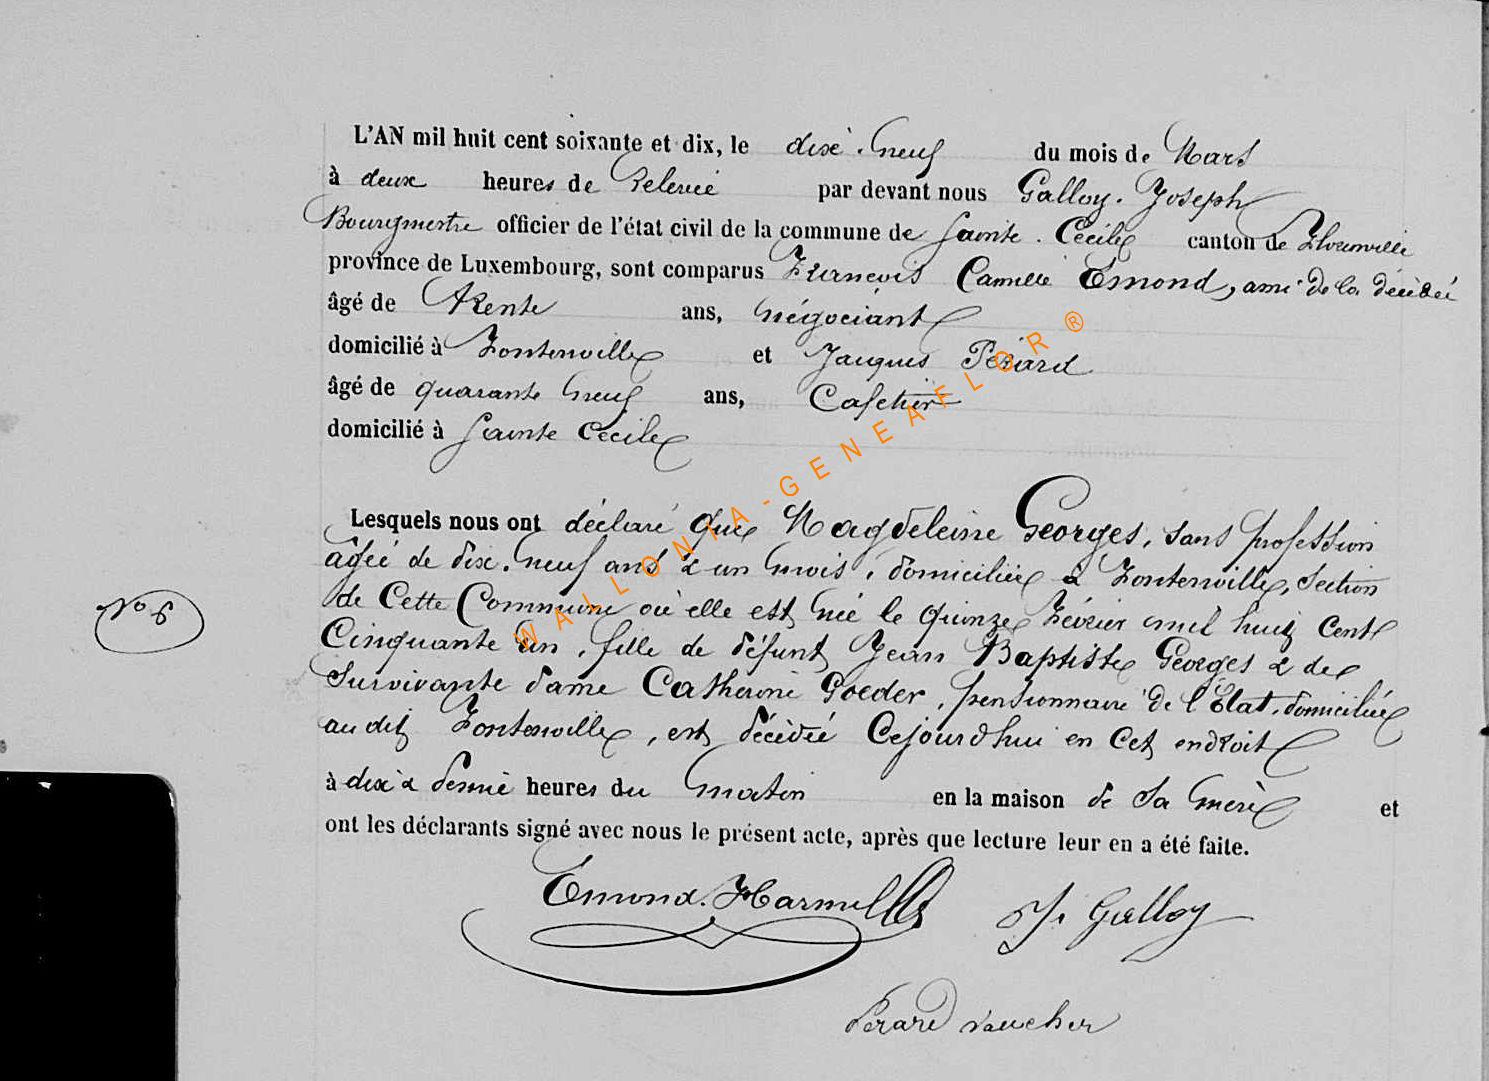 L'AN mil huit cent soixante et dix, le dixe-neuf du mois de Mars
à deux heures de relevée par devant nous Galloy. Joseph
Bourgmestre officier de l'état civil de la commune de Sainte. Cécile canton de Florenville
province de Luxembourg, sont comparus François Camille Emond, ami de la décédée
âgé de Trente ans, négociant
domicilié à Fontenoille et Jacques Pérard
âgé de quarante neuf ans, Cafetier
domicilié à Sainte Cécile
Lesquels nous ont déclaré que Magdeleine Georges, sans profession
âgée de dix. neuf ans & un mois, domiciliée à Fontenoille, Section
N° 6
de Cette Commune où elle est née le quinze Février mil huit Cent
Cinquante un, fille de défunt Jean Baptiste Georges & de
Survivante dame Catherine Goeder, pensionnaire de l'Etat, domiciliée
au dit Fontenoille, est décédée Cejourd'hui en Cet endroit
à dix & demie heures du matin en la maison de Sa mère et
ont les déclarants signé avec nous le présent acte, après que lecture leur en a été faite.
Emond. Harmel J. Galloy
Pérard
WALLONIA-GENEAFLOR®